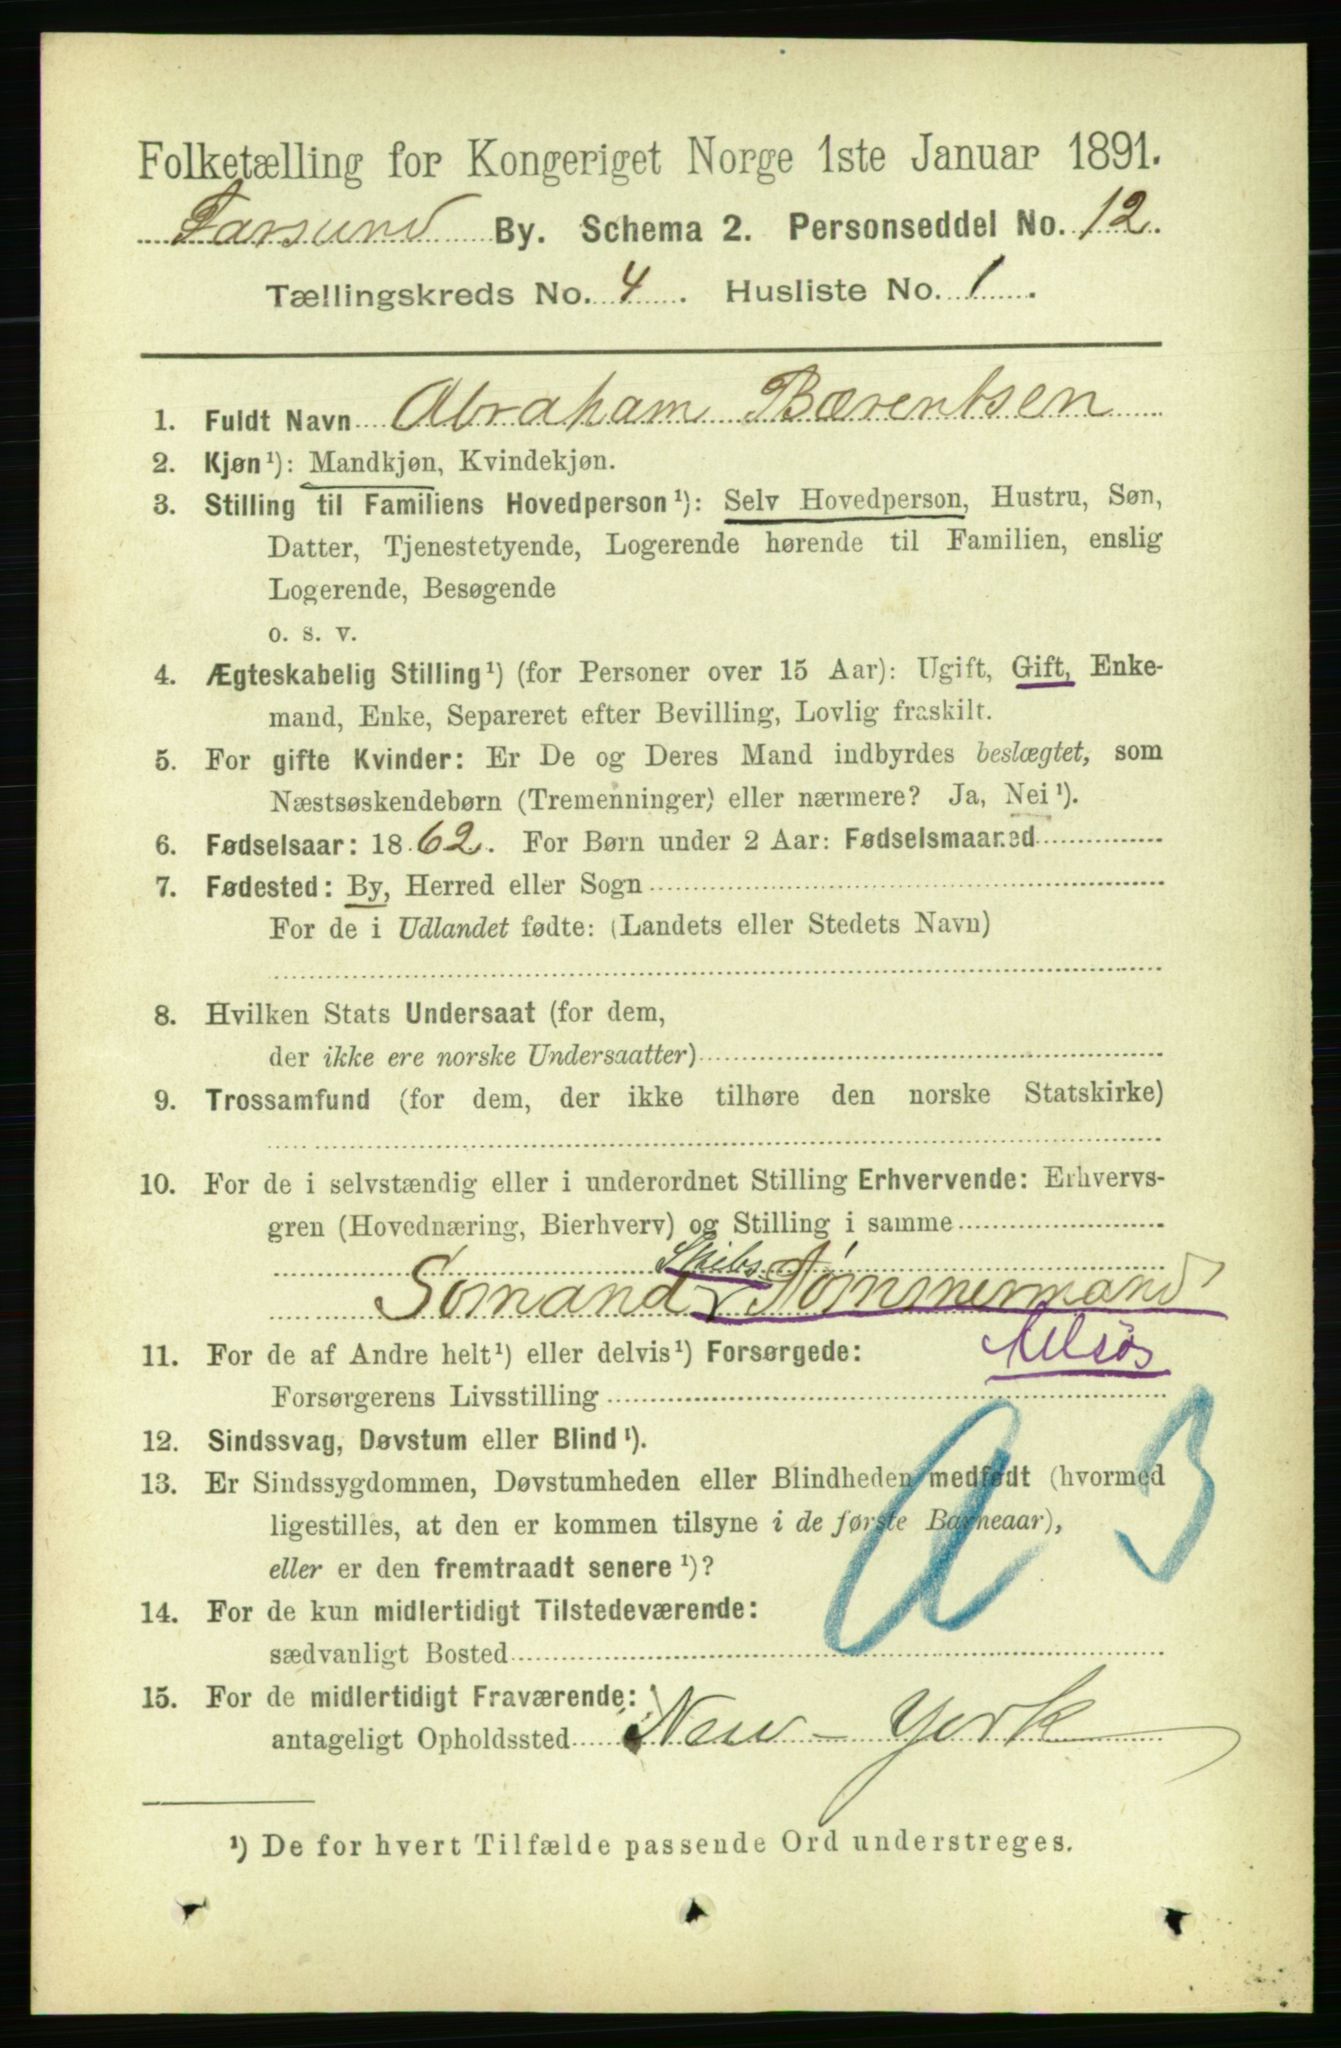 Folketælling for Kongeriget Norge 1ste Januar 1891.
Farsund By. Schema 2. Personseddel No. 12.
Tællingskreds No. 4. Husliste No. 1.
1. Fuldt Navn Abraham Bærentsen
2. Kjøn¹): Mandkjøn, Kvindekjøn.
3. Stilling til Familiens Hovedperson¹): Selv Hovedperson, Hustru, Søn,
Datter, Tjenestetyende, Logerende hørende til Familien, enslig
Logerende, Besøgende
o. s. v.
4. Ægteskabelig Stilling¹) (for Personer over 15 Aar): Ugift, Gift, Enke-
mand, Enke, Separeret efter Bevilling, Lovlig fraskilt.
5. For gifte Kvinder: Er De og Deres Mand indbyrdes beslægtet, som
Næstsøskendebørn (Tremenninger) eller nærmere? Ja, Nei¹).
6. Fødselsaar: 1862. For Børn under 2 Aar: Fødselsmaaned
7. Fødested: By, Herred eller Sogn
For de i Udlandet fødte: (Landets eller Stedets Navn)
8. Hvilken Stats Undersaat (for dem,
der ikke ere norske Undersaatter)
9. Trossamfund (for dem, der ikke tilhøre den norske Statskirke)
10. For de i selvstændig eller i underordnet Stilling Erhvervende: Erhvervs-
gren (Hovednæring, Bierhverv) og Stilling i samme
Skibs
Sømand Tømmermand
11. For de af Andre helt¹) eller delvis¹) Forsørgede:
Forsørgerens Livsstilling
12. Sindssvag, Døvstum eller Blind¹).
13. Er Sindssygdommen, Døvstumheden eller Blindheden medfødt (hvormed
ligestilles, at den er kommen tilsyne i de første Barneaar),
eller er den fremtraadt senere¹)?
14. For de kun midlertidigt Tilstedeværende:
sædvanligt Bosted
15. For de midlertidigt Fraværende:
antageligt Opholdssted New-York
¹) De for hvert Tilfælde passende Ord understreges.